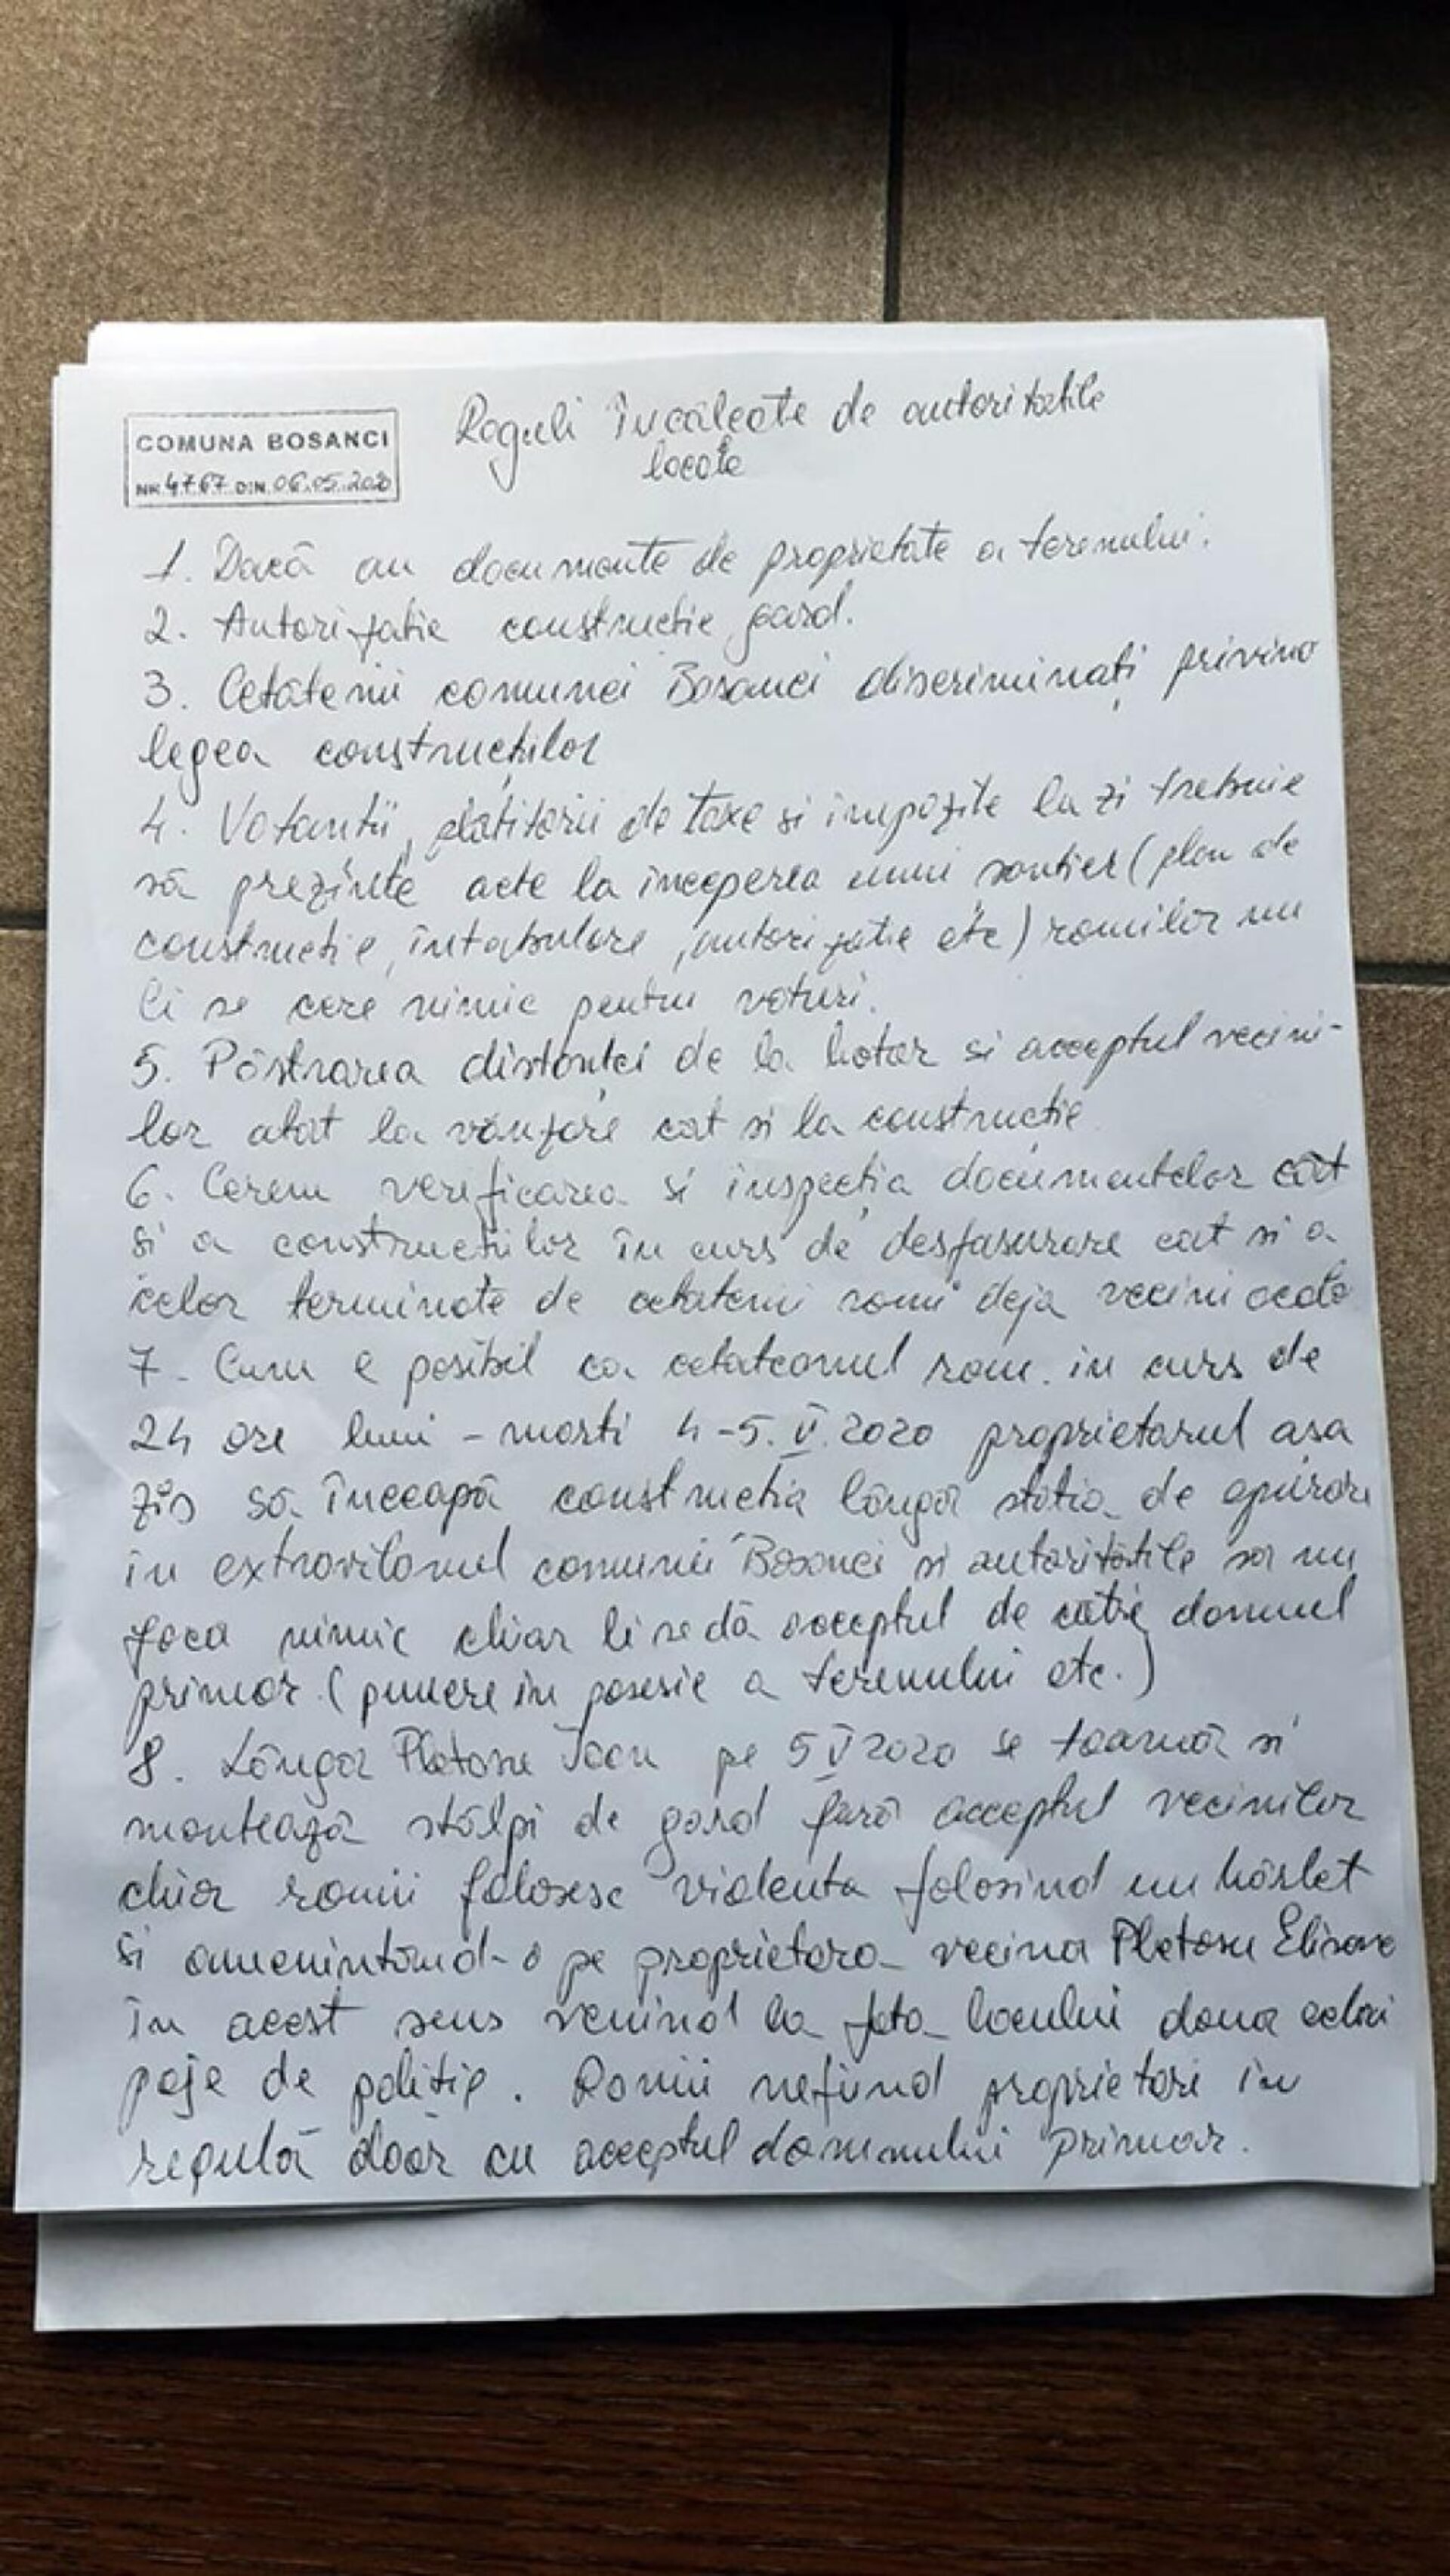 COMUNA BOSANCI
NR. 4767 DIN 06.05.2020
Reguli încălcate de autoritatile
locale
1. Dacă au documente de proprietate a terenului.
2. Autorizatie constructie gard.
3. Cetatenii comunei Bosanci discriminați privind
legea construcțiilor
4. Votantii, platitorii de taxe si impozite la zi trebuie
să prezinte acte la inceperea unui santier (plan de
constructie, intabulare, autorizatie etc) romilor nu
li se cere nimic pentru voturi.
5. Păstrarea distanței de la hotar si acceptul vecini-
lor atat la vânzare cat si la constructie
6. Cerem verificarea si inspecția documentelor cât
si a construcțiilor în curs de desfasurare cat si a
celor terminate de cetatenii romi deja vecini acolo
7. Cum e posibil ca cetateanul rom. in curs de
24 ore luni - marti 4-5.V.2020 proprietarul așa
zis să înceapă constructia lângă statia de epurare
în extravilanul comunii Bosanci si autoritătile sa nu
faca nimic chiar li se dă acceptul de catre domnul
primar. (punere in posesie a terenului etc.)
8. Lângă Pletosu Ioan pe 5 V 2020 se toarnă si
montează stâlpi de gard fără acceptul vecinilor
chiar romii folosesc violenta folosind un hârlet
si amenintând-o pe proprietara vecina Pletosu
în acest sens venind la fata locului doua echi
paje de politie. Romii nefiind proprietari in
regulă doar cu acceptul domnului primar.